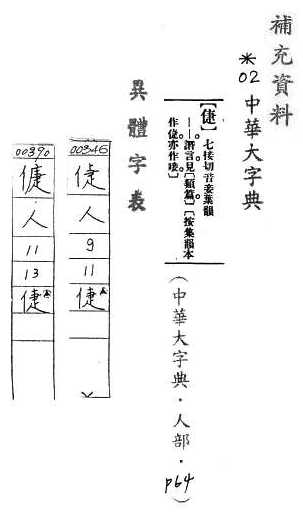 補充資料
*02 中華大字典
【倢】七接切音妾葉韻
——譖言見〔類篇〕〔按集韻本
亦作唼〕
(中華大字典．人部．p64)
異體字表
00346
人
9
11
倢
00390
人
11
13
倢